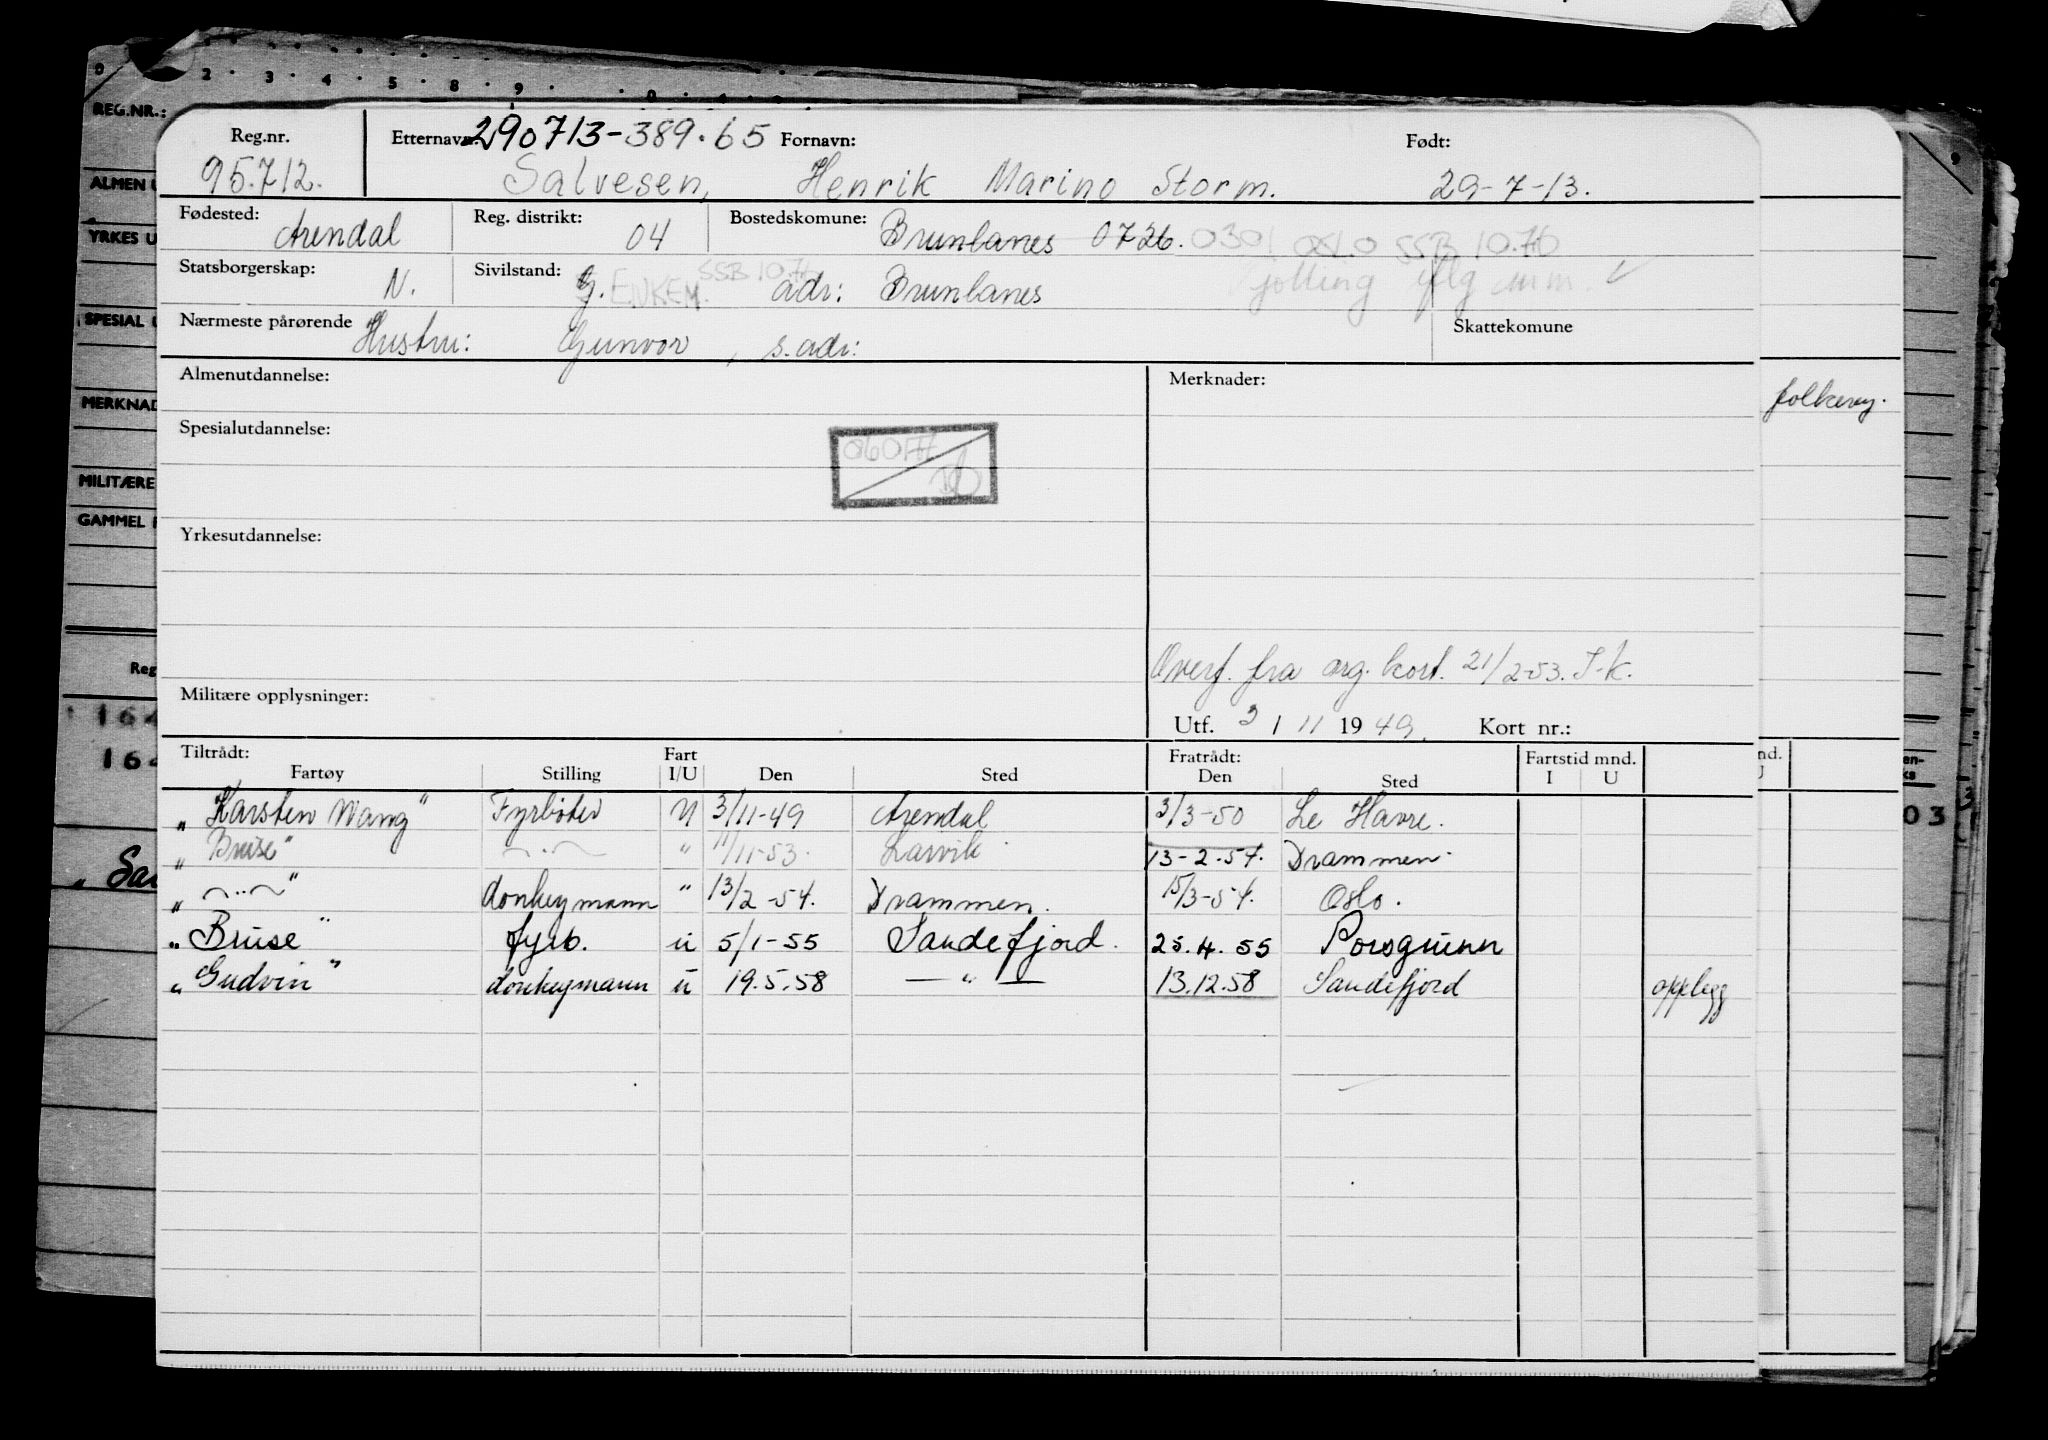 0 2 3 4 5 8 9
REG.NR.:
ALMEN
YRKES U
SPESIAL
MERKNAD
MILITÆRE
GAMMEL
Reg
164
164
Reg.nr. Etternavn: 290713-389.65 Fornavn: Født:
95.712. Salvesen, Henrik Marino Storm. 29-7-13.
Fødested: Arendal Reg. distrikt: 04 Bostedskomune: Brunlanes 0726. 0301 OSLO SSB 10.76
Statsborgerskap: N. Sivilstand: G. ENKEM. SSB 10.76 adr: Brunlanes Tjølling iflg mm.
Nærmeste pårørende Hustru: Gunvor, s. adr: Skattekomune
Almenutdannelse: Merknader:
folkereg.
Spesialutdannelse:
Yrkesutdannelse:
Overf. fra org. kort. 21/2-53. J-K.
Militære opplysninger:
Utf. 3 / 11 1949. Kort nr.:
Tiltrådt: Fart Fratrådt: Fartstid mnd.
Fartøy Stilling I/U Den Sted Den Sted I U
„ Karsten Wang" Fyrbøter U 3/11-49 Arendal 3/3-50 Le Havre.
„ Bruse" —"— " 11/11-53. Larvik 13-2-54. Drammen.
„ —"—" donkeymann " 13/2-54. Drammen. 15/3-54. Oslo.
„ Bruse" fyrb. u 5/1-55 Sandefjord. 25.4.55 Porsgrunn
„ Gudvin" donkeymann u 19.5.58 —"— 13.12.58 Sandefjord opplegg